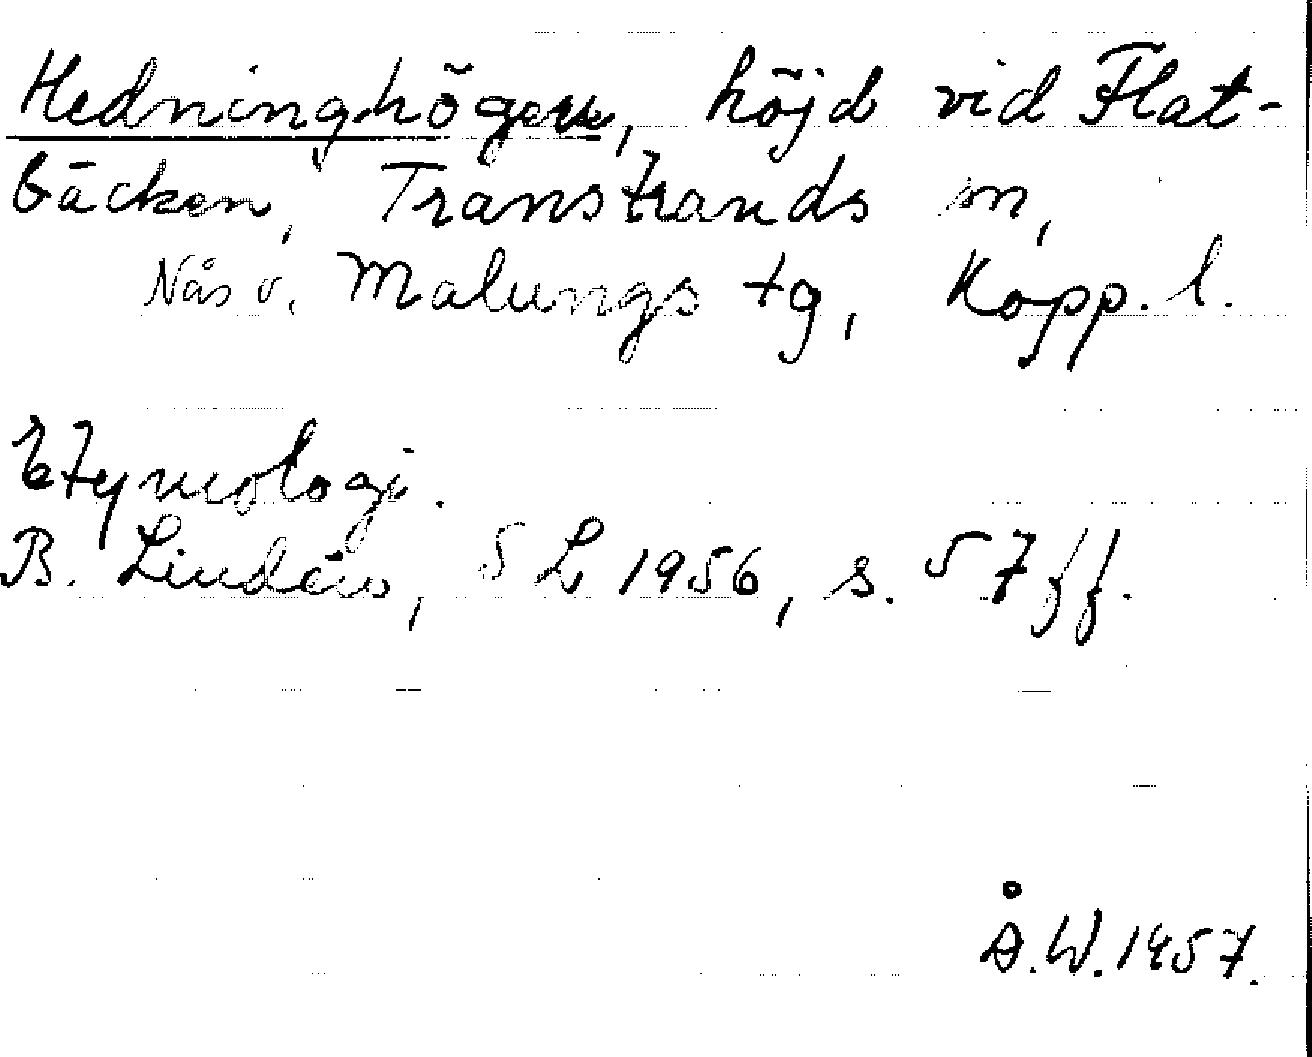 Hedninghögen, höjd vid Flat-
bäcken, Transtrands sn,
Nås v. Malungs tg, Kopp. l.
Etymologi.
B. Lindén, SL 1956, s. 57 ff.
Å.W. 1957.